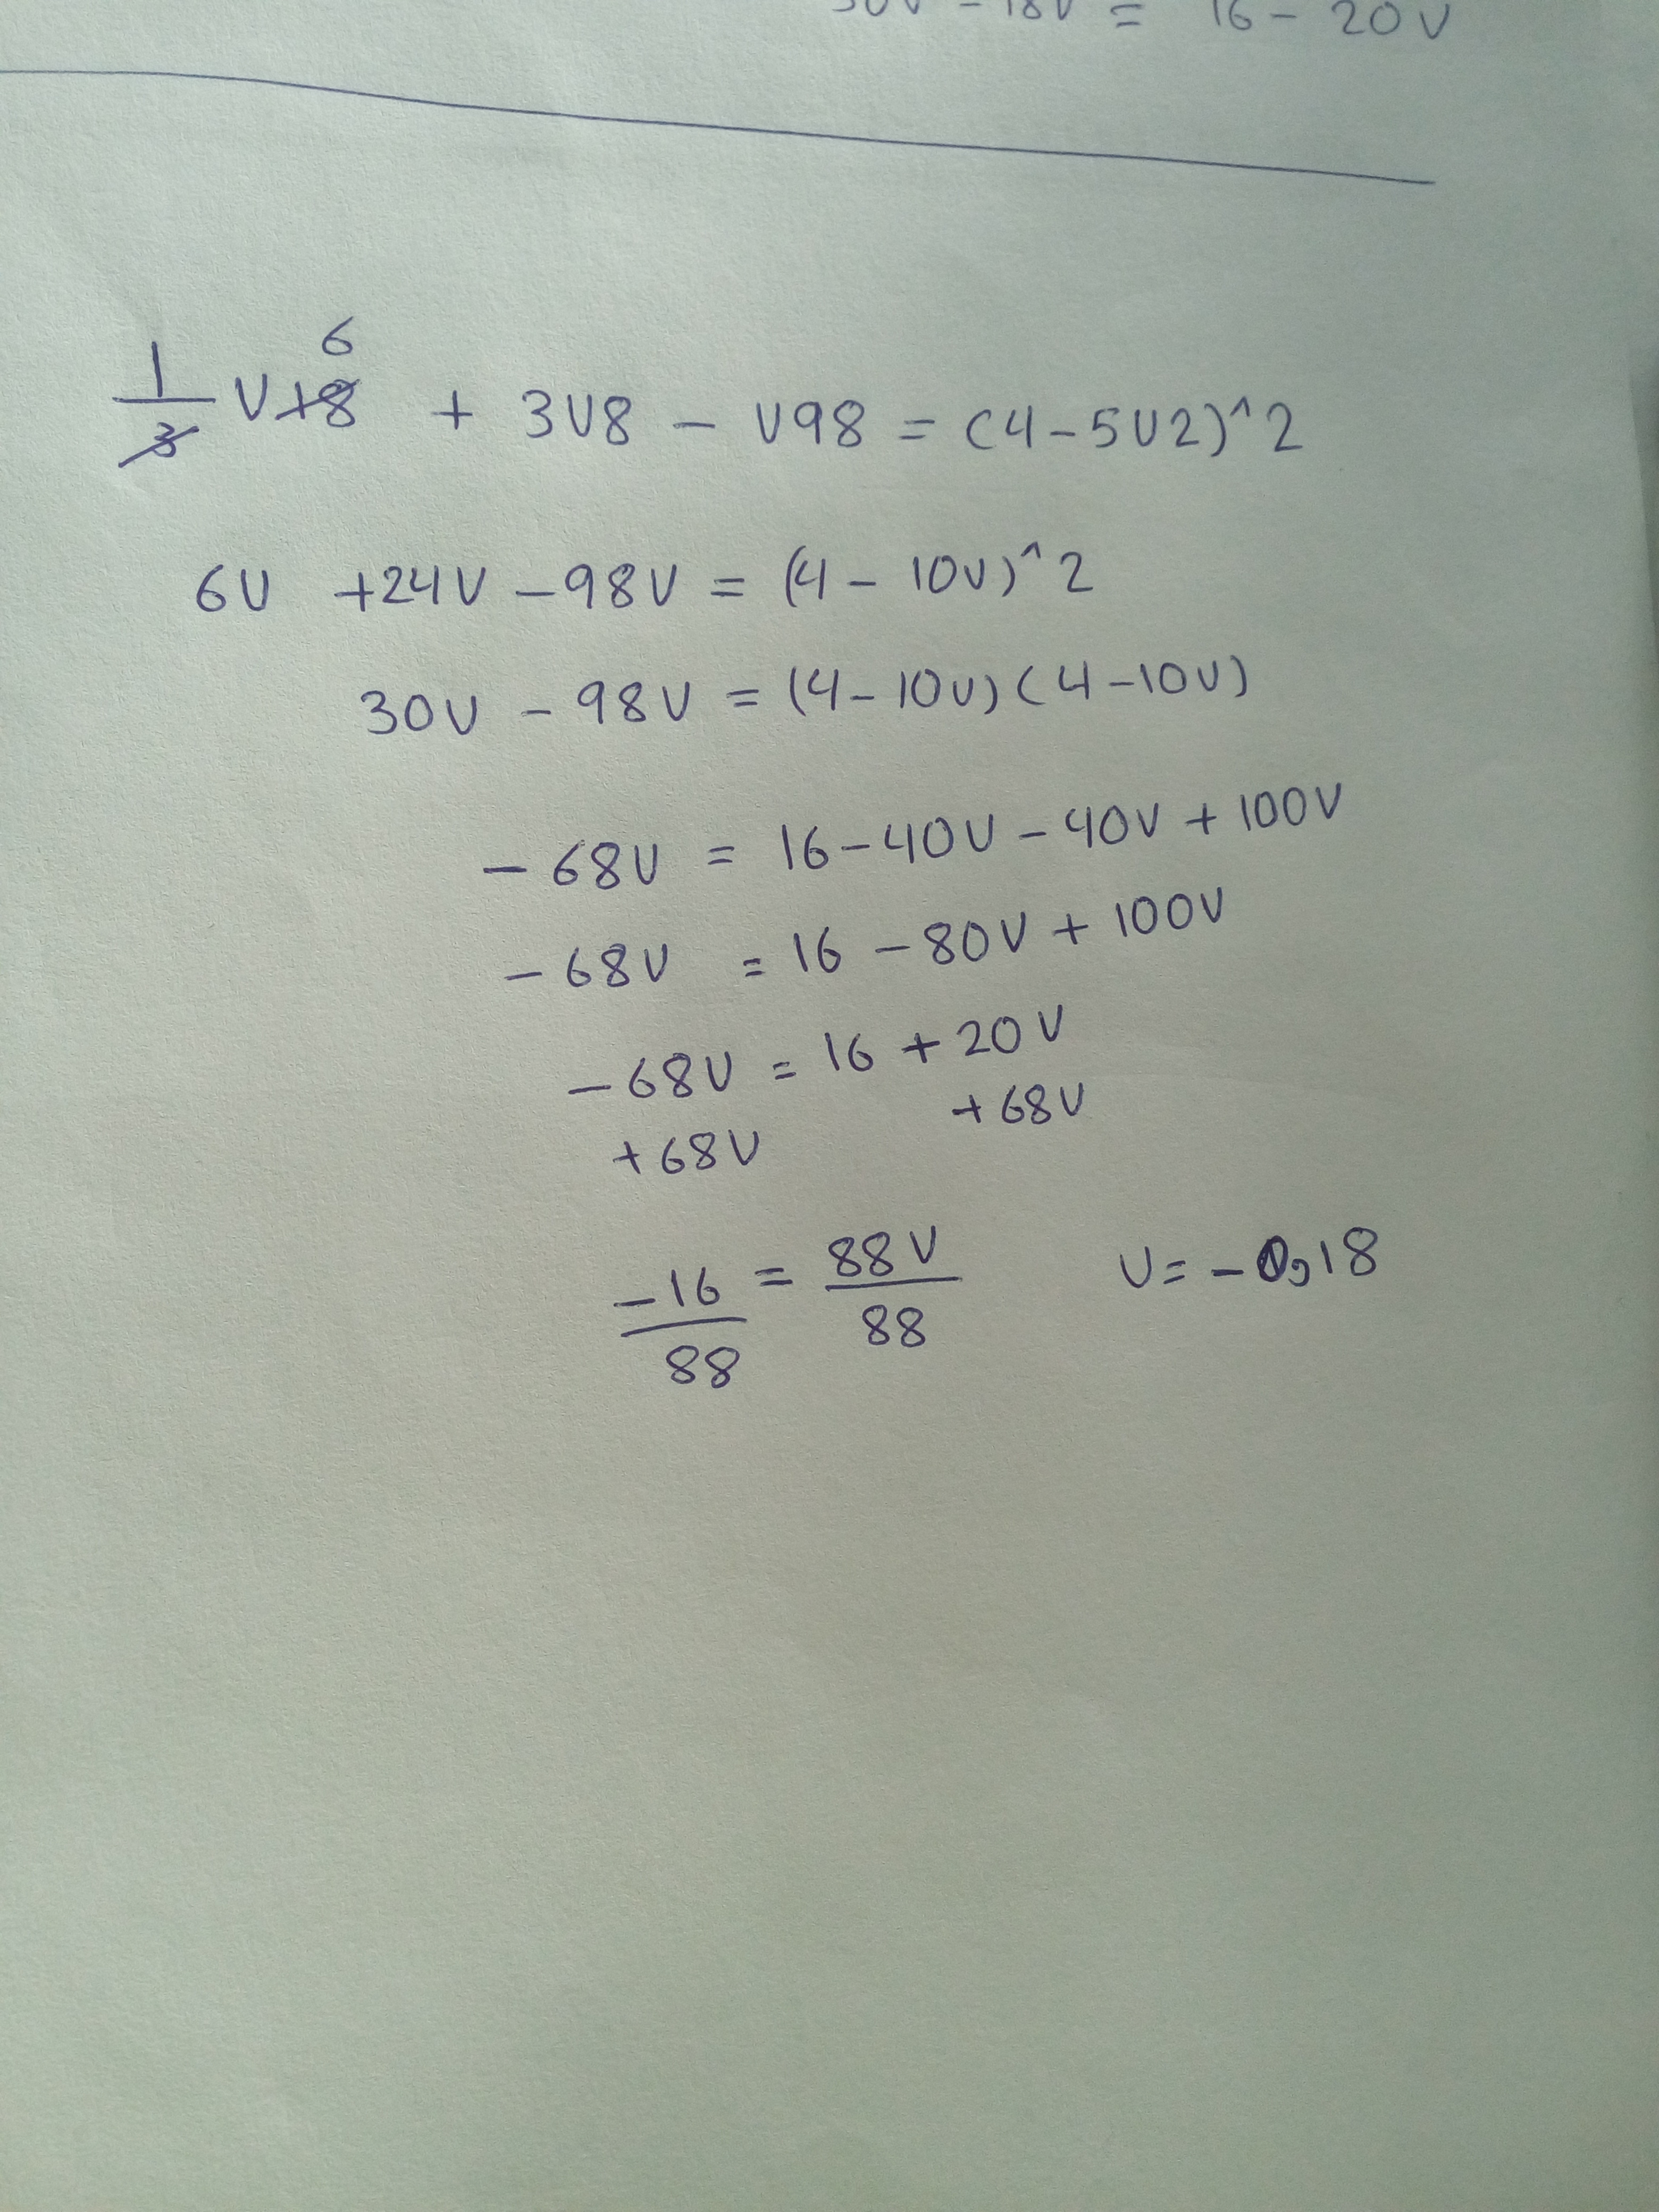 30V - 18V = 16 - 20V
6
1/3 V18 + 3V8 - V98 = (4-5V2)^2
6V +24V -98V = (4 - 10V)^2
30V - 98V = (4-10V)(4-10V)
-68V = 16-40V-40V+100V
-68V = 16 -80V + 100V
-68V = 16 + 20V
+68V +68V
-16/88 = 88V/88 V= -0,18